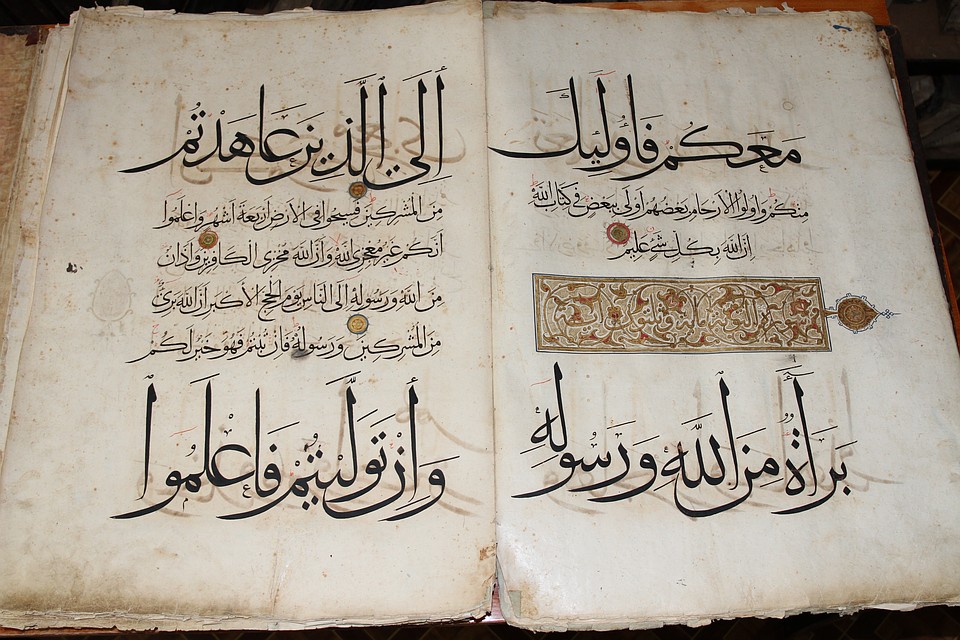 معكم فأوليك
منكم وأولوا الأرحام بعضهم أولى ببعض في كتاب الله
إن الله بكل شيء عليم
سورة التوبة
براة من الله ورسوله
إلى الذين عاهدتم
من المشركين فسيحوا في الأرض أربعة أشهر واعلموا
أنكم غير معجزي الله وأن الله مخزي الكافرين وأذان
من الله ورسوله إلى الناس يوم الحج الأكبر أن الله بريء
من المشركين ورسوله فإن تبتم فهو خير لكم
وإن توليتم فاعلموا